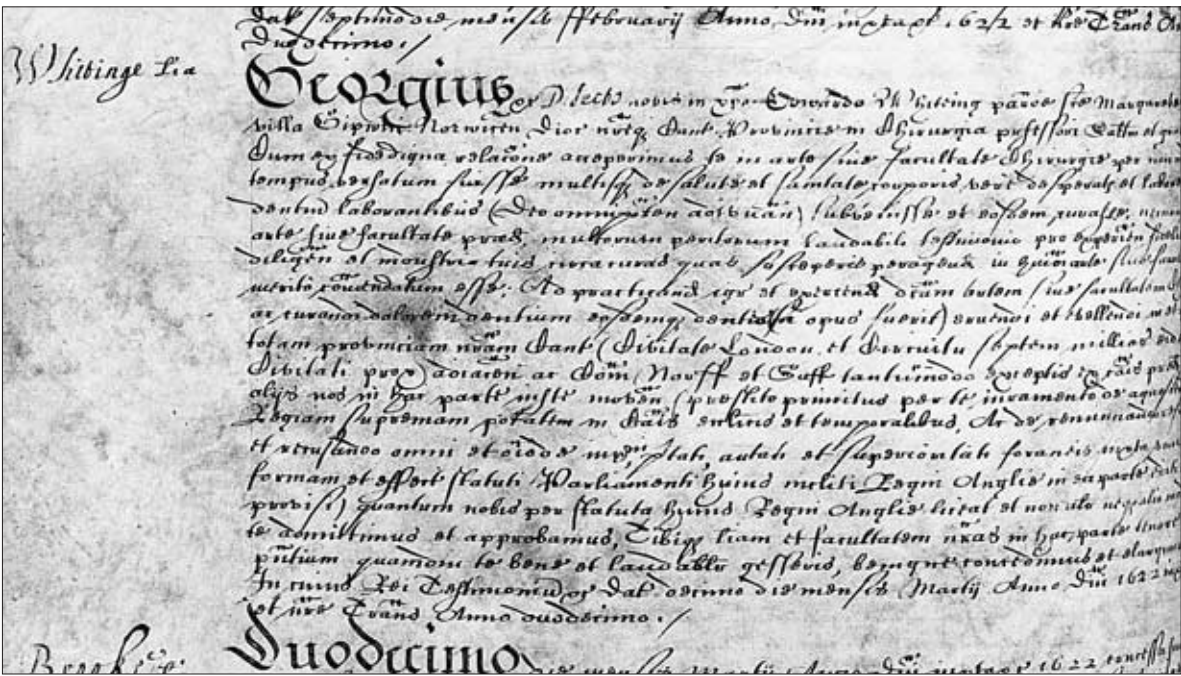 Dat septimo die mensis ffebruarij Anno Dni iuxta &c 1621/2 et nre Trans
Duodecimo ./
Whitinge Lia
Georgius &c Dilecto nobis in xpo Edwardo Whiting paroe ste Margarete
villa Gipwic Norwicen Dioc nreq Cant Provincie in Chirurgia professori Saltm et
Cum ex fidedigna relacone acceperimus te in arte sive facultate Chirurgie per
tempus versatum fuisse multisq de salute et sanitate corporis vere desperatis et
dentium laborantibus (Deo omnipoten) subvenisse et eosdem curasse,
arte sive facultate pred, multorum peritorum laudabili testimonio pro experien
diligen et industria tuis circa curas quas susceperis peragend in arte sive
merito comendatum esse. Ad practicand igr et exercend dcam artem sive facultatem
ac curandi dolorem dentium eosdemq dentes (si opus fuerit) eruendi et evellendi
totam provinciam nram Cant (Civitate London et Circuitu septem milliar eidem
Civitati prox adiacen ac Com Norff et Suff tantumodo exceptis) ex cais
alijs nos in hac parte iuste moven (prestito primitus per te iuramento de
Regiam supremam potatem in cais ecclicis et temporalibus, Ac de renunciando
et recusando omni et oiode iurisdictioni, ptati, autati et superioritati foraneis iuxta
formam et effect statuti Parliamenti huius incliti Regni Anglie in ea parte
provisi) quantum nobis per statuta huius Regni Anglie liceat et non alr
te admittimus et approbamus, Tibiq liam et facultatem nras in hac parte
pntium quamdiu te bene et laudablr gesseris, benigne concedimus et elargimur
In cuius Rei Testimonium &c Dat decimo die mensis Martij Anno Dni 1621
et nre Trans Anno duodecimo ./
Brooke
Duodecimo die mensis Martij Anno Dni iuxta &c 1621 concessa